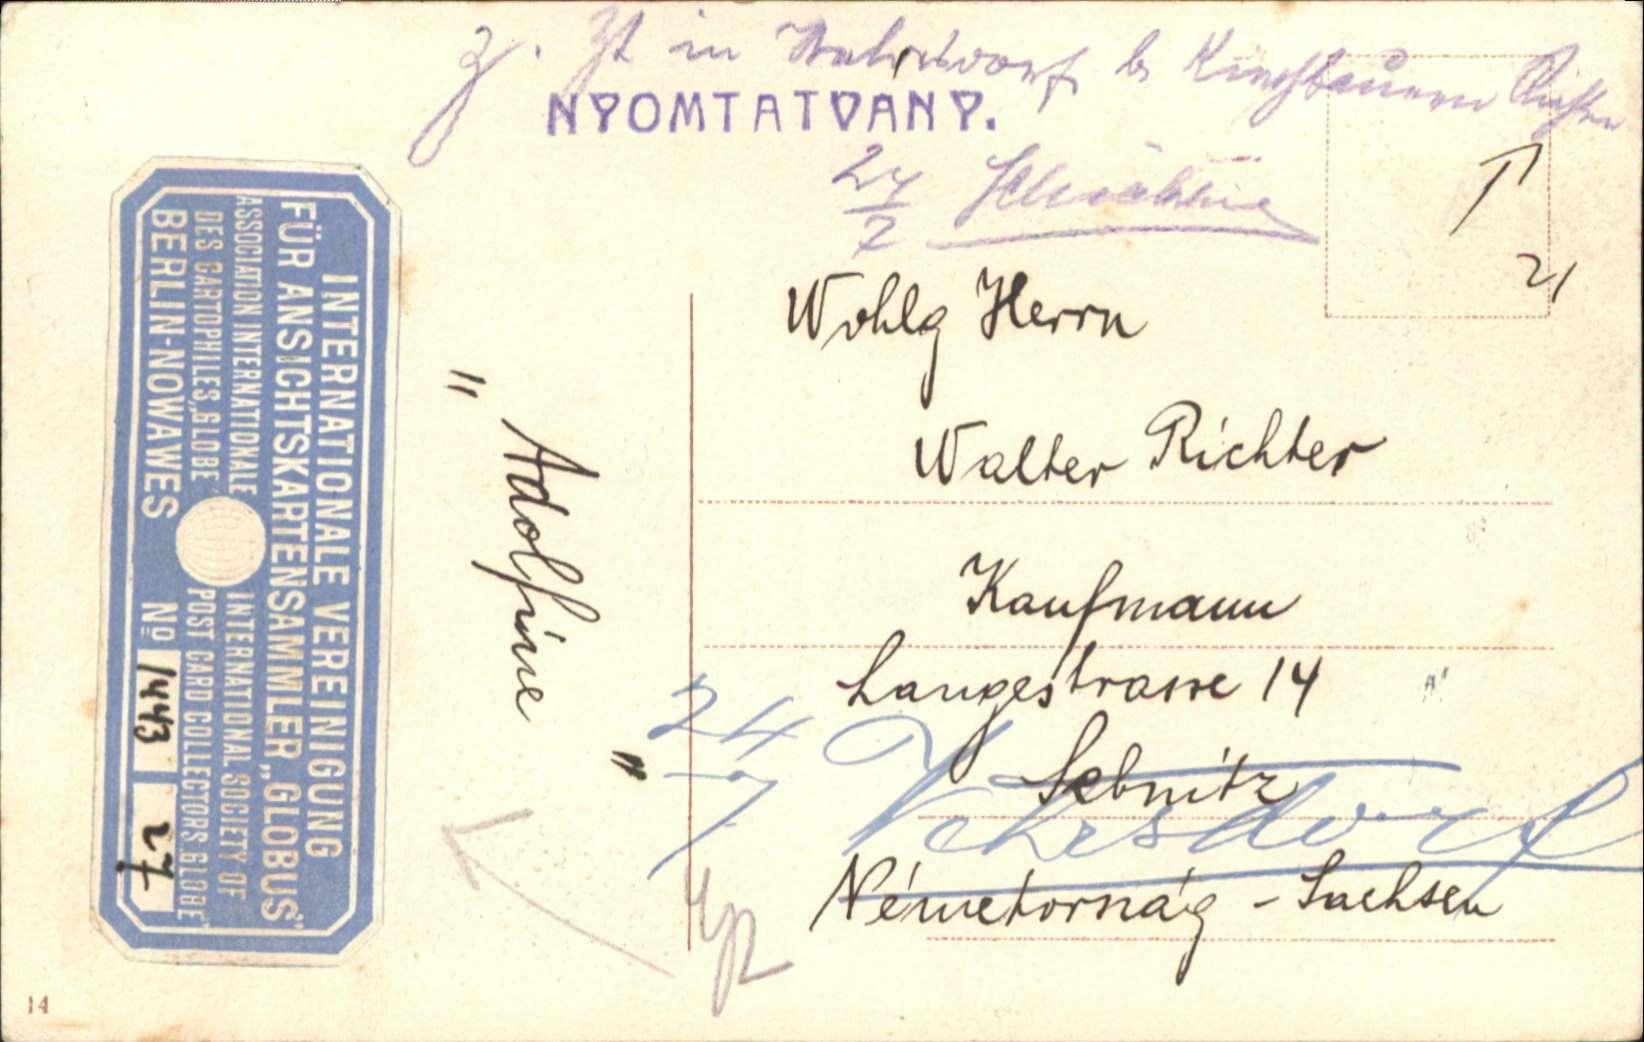 z. Zt in
NYOMTATVANY.
24
7
Wohlg Herrn
Walter Richter
Kaufmann
Langestrasse 14
Sebnitz
Németország - Sachsen
24
7
"Adolfine"
INTERNATIONALE VEREINIGUNG
FÜR ANSICHTSKARTENSAMMLER „GLOBUS"
ASSOCIATION INTERNATIONALE
DES CARTOPHILES „GLOBE
INTERNATIONAL SOCIETY OF
POST CARD COLLECTORS GLOBE"
BERLIN-NOWAWES
No 1443 27
21
14